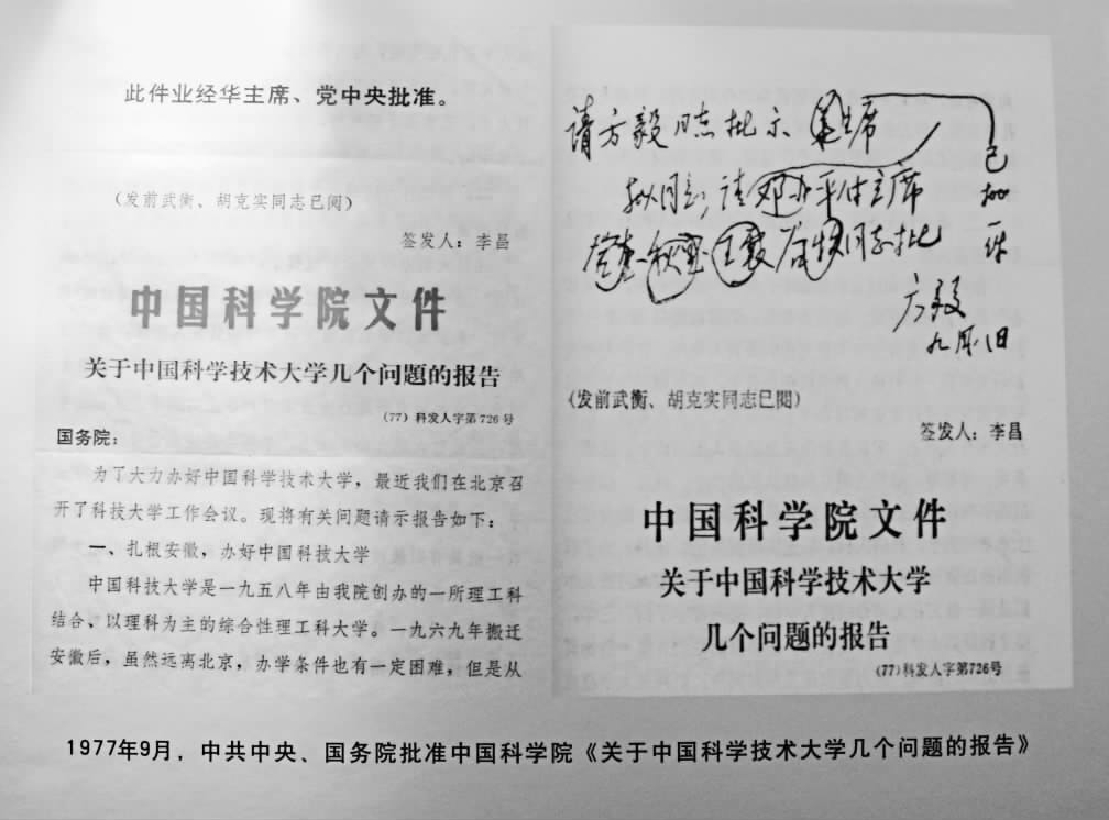 此件业经华主席、党中央批准。
(发前武衡、胡克实同志已阅)
签发人：李昌
中国科学院文件
关于中国科学技术大学几个问题的报告
(77) 科发人字第726号
国务院：
为了大力办好中国科学技术大学，最近我们在北京召
开了科技大学工作会议。现将有关问题请示报告如下：
一、扎根安徽，办好中国科技大学
中国科技大学是一九五八年由我院创办的一所理工科
结合、以理科为主的综合性理工科大学。一九六九年搬迁
安徽后，虽然远离北京，办学条件也有一定困难，但是从
请方毅同志批示
华主席
拟同意，请邓小平付主席
同志批
方毅
九月
(发前武衡、胡克实同志已阅)
签发人：李昌
中国科学院文件
关于中国科学技术大学
几个问题的报告
(77)科发人字第726号
1977年9月，中共中央、国务院批准中国科学院《关于中国科学技术大学几个问题的报告》